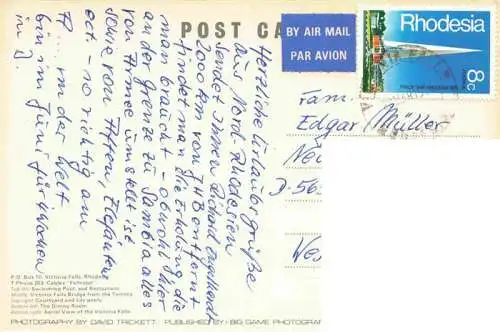 POST CA
BY AIR MAIL
PAR AVION
Rhodesia
8c
Herzliche Urlaubsgrüße
aus Nord-Rhodesien
sendet Ihnen Richard
2000 km von JHB entfernt
findet man die Erholung, die
man braucht - obwohl hier
an der Grenze zu Sambia alles
von Armee umstellt ist
sowie von Affen, Elefanten
ect. - so richtig am
in der Welt
bin im Juni für 4 Wochen
in D.
Fam.
Edgar Müller
Neu
D-56
We
P.O. Box 10, Victoria Falls, Rhodesia
T Phone 203 Cables
Swimming Pool, and Restaurant
Victoria Falls Bridge from the Terrace
Courtyard and lily ponds
The Dining Room
Aerial View of the Victoria Falls
PHOTOGRAPHY BY DAVID TRICKETT. PUBLISHED BY: BIG GAME PHOTOGRA